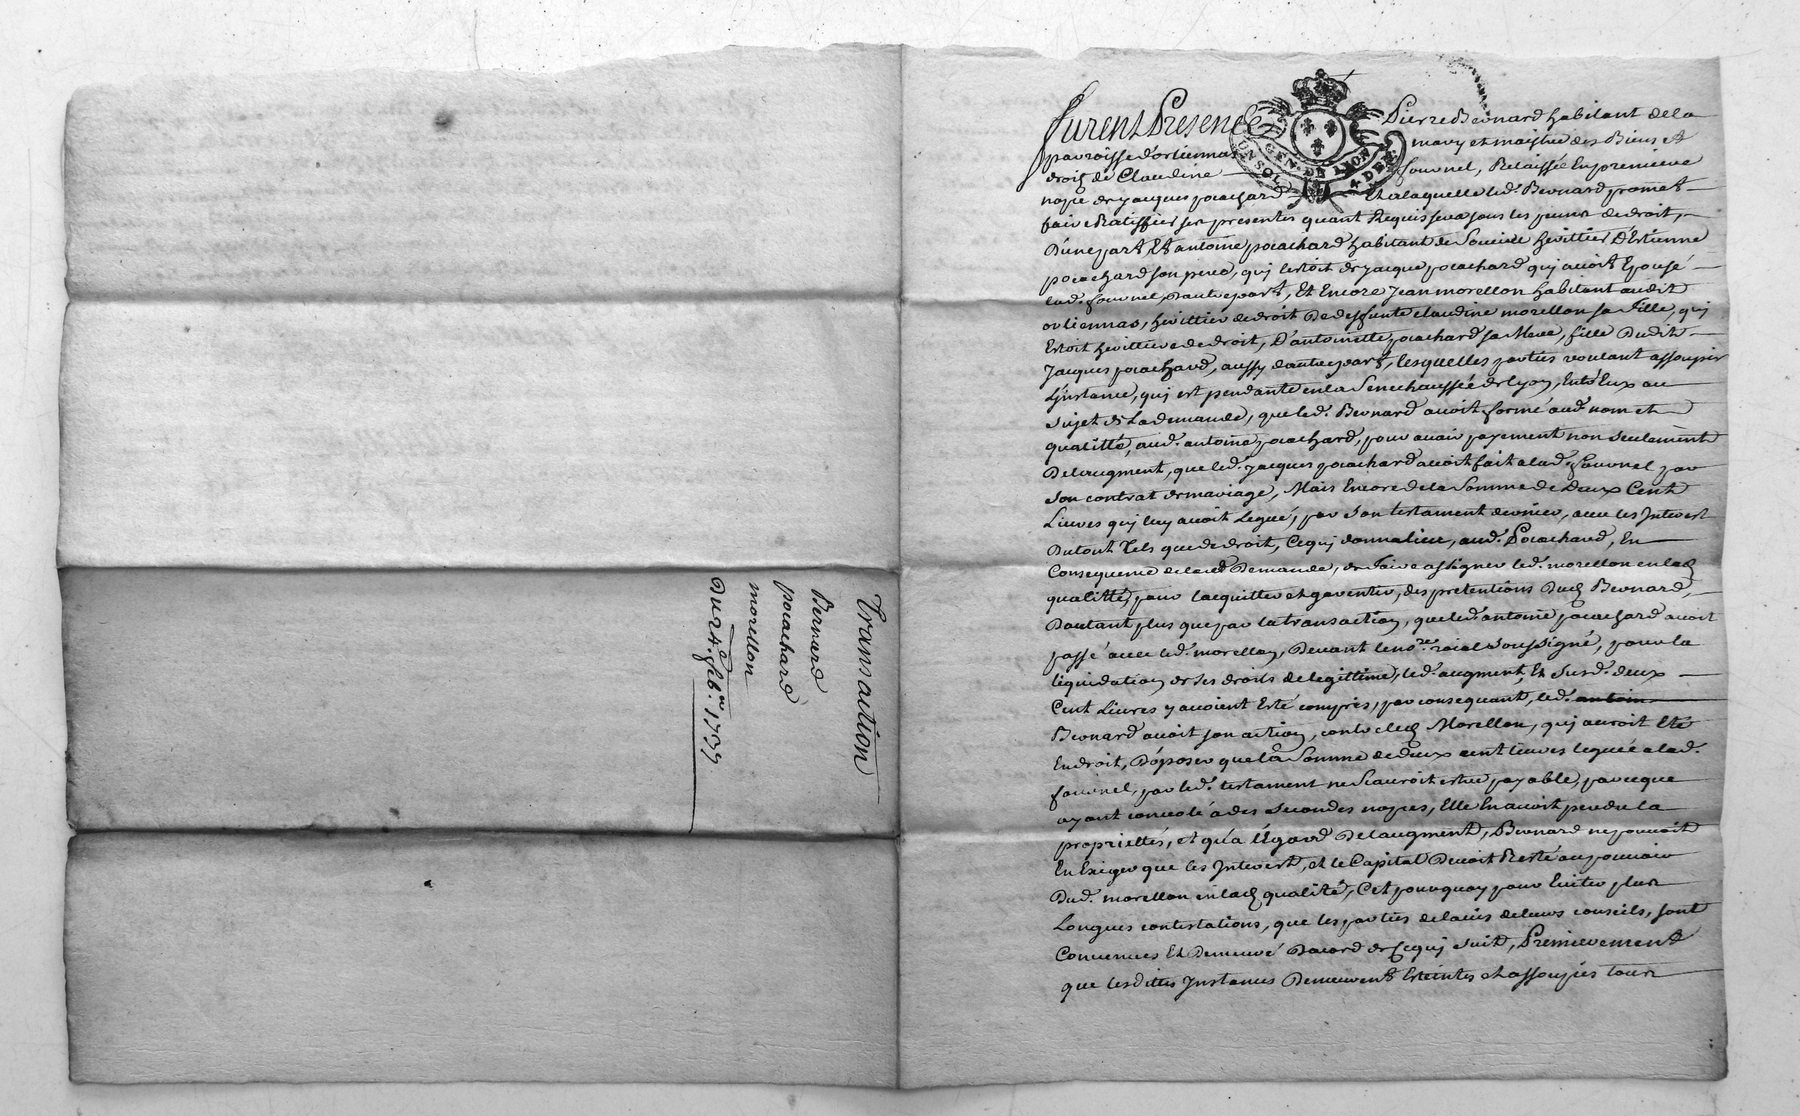 Transaction
Bernard
pocachard
morellon
Du 24.e 9bre 1737.
GEN. DE LYON
UN SOL 4 DEN.
Furent Presence Pierre Bernard habitant de la
parroisse d'orliennas mary et maistre des Biens et
droits de Claudine fournel, Relaissée En premiere
nopce de jacques pocachard Et a laquelle led. Bernard promet
faire Ratiffier ses presentes quant Requis sera sous les peines de droit,
D'une part, Et antoine pocachard habitant de Soucieu herittier D'Estienne
pocachard son pere, quj Estoit de jacque pocachard quj avoit Epousé
lad. fournel D'autre part, Et Encore Jean morellon habitant audit
orliennas, herittier de droit De deffunte claudine morellon sa Fille, quj
Estoit herittiere de droit, D'antoinette pocachard sa Mere, fille Dudit
Jacques pocachard, aussy d'autre part, lesquelles parties voulant assoupir
L'jnstance, quj est pendante en la Senechaussée de lyon, Entre Eux au
sujet de La demande, que led. Bernard avoit formé aud. nom et
qualitté, aud. antoine pocachard, pour avoir payement non seulement
De laugment, que led. jacques pocachard avoit fait a lad. fournel par
son contrat de mariage, Mais Encore de la Somme de Deux Cent
Livres quj luy avoit Legué, par son testament dernier, avec les Jnterest
Du tout tels que de droit, Ce quj donna lieu, aud. Pocachard, En
Consequence de lad. Demande, de faire assigner led. morellon en lad.
qualitté, pour l'acquitter et garentir, des pretentions Dud. Bernard,
D'autant plus que par la transaction, que led. antoine pocachard avoit
passé avec led. morellon, Devant le nore. roial soussigné, pour la
liquidation de ses droits de legittime, led. augment, Et Susd. deux
Cent Livres y avoient Esté compris, par consequant, led. antoin
Bernard avoit son action, contre led. Morellon, quj auroit Eté
En droit, D'oposer que la Somme de deux cent livres leguée a lad.
fournel, par led. testament ne Scauroit estre payable, parce que
ayant convolé a des secondes nopces, Elle En avoit perdu la
proprietté, et qu'a l'Egard De laugment, Bernard ne pouvoit
En Exiger que les Jnterest, et le Capital Devoit Resté au pouvoir
Dud. morellon en lad. qualité, C'et pourquoy pour Eviter plus
Longues contestations, que les parties de l'avis de leurs conseils, sont
Convenues Et Demeuré D'acord de ce quj suit, Premierement
que lesdittes Jnstances Demeurent Eteintes et assoupies tous